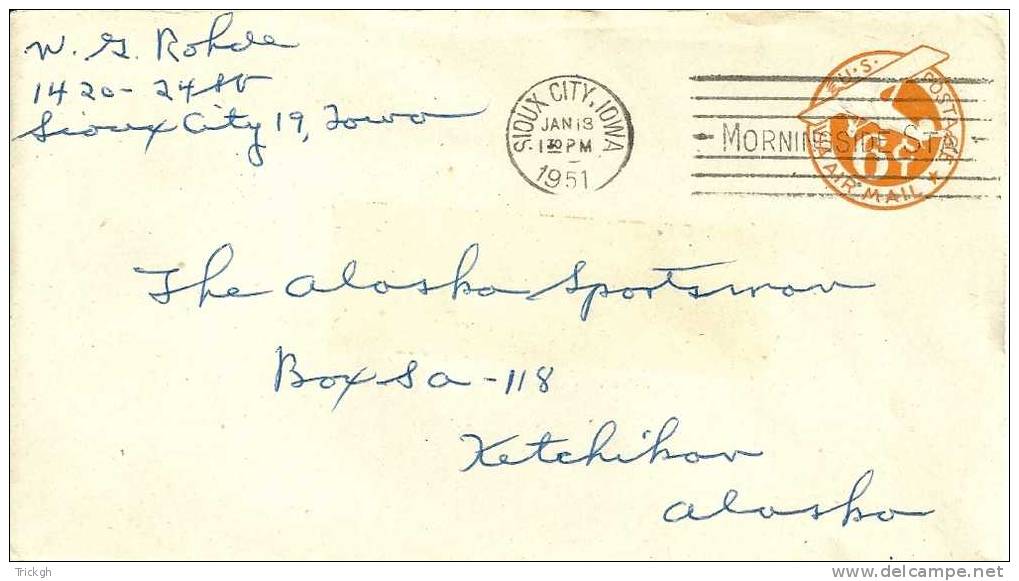 W. G. Rohde
1420 - 24 St
Sioux City 19, Iowa
SIOUX CITY, IOWA
JAN 13
1 30 PM
1951
MORNINGSIDE ST
U.S. POSTAGE
VIA AIR MAIL
6¢
The Alaska Sportsman
Box Sa-118
Ketchikan
Alaska
Trickgh
delcampe.net